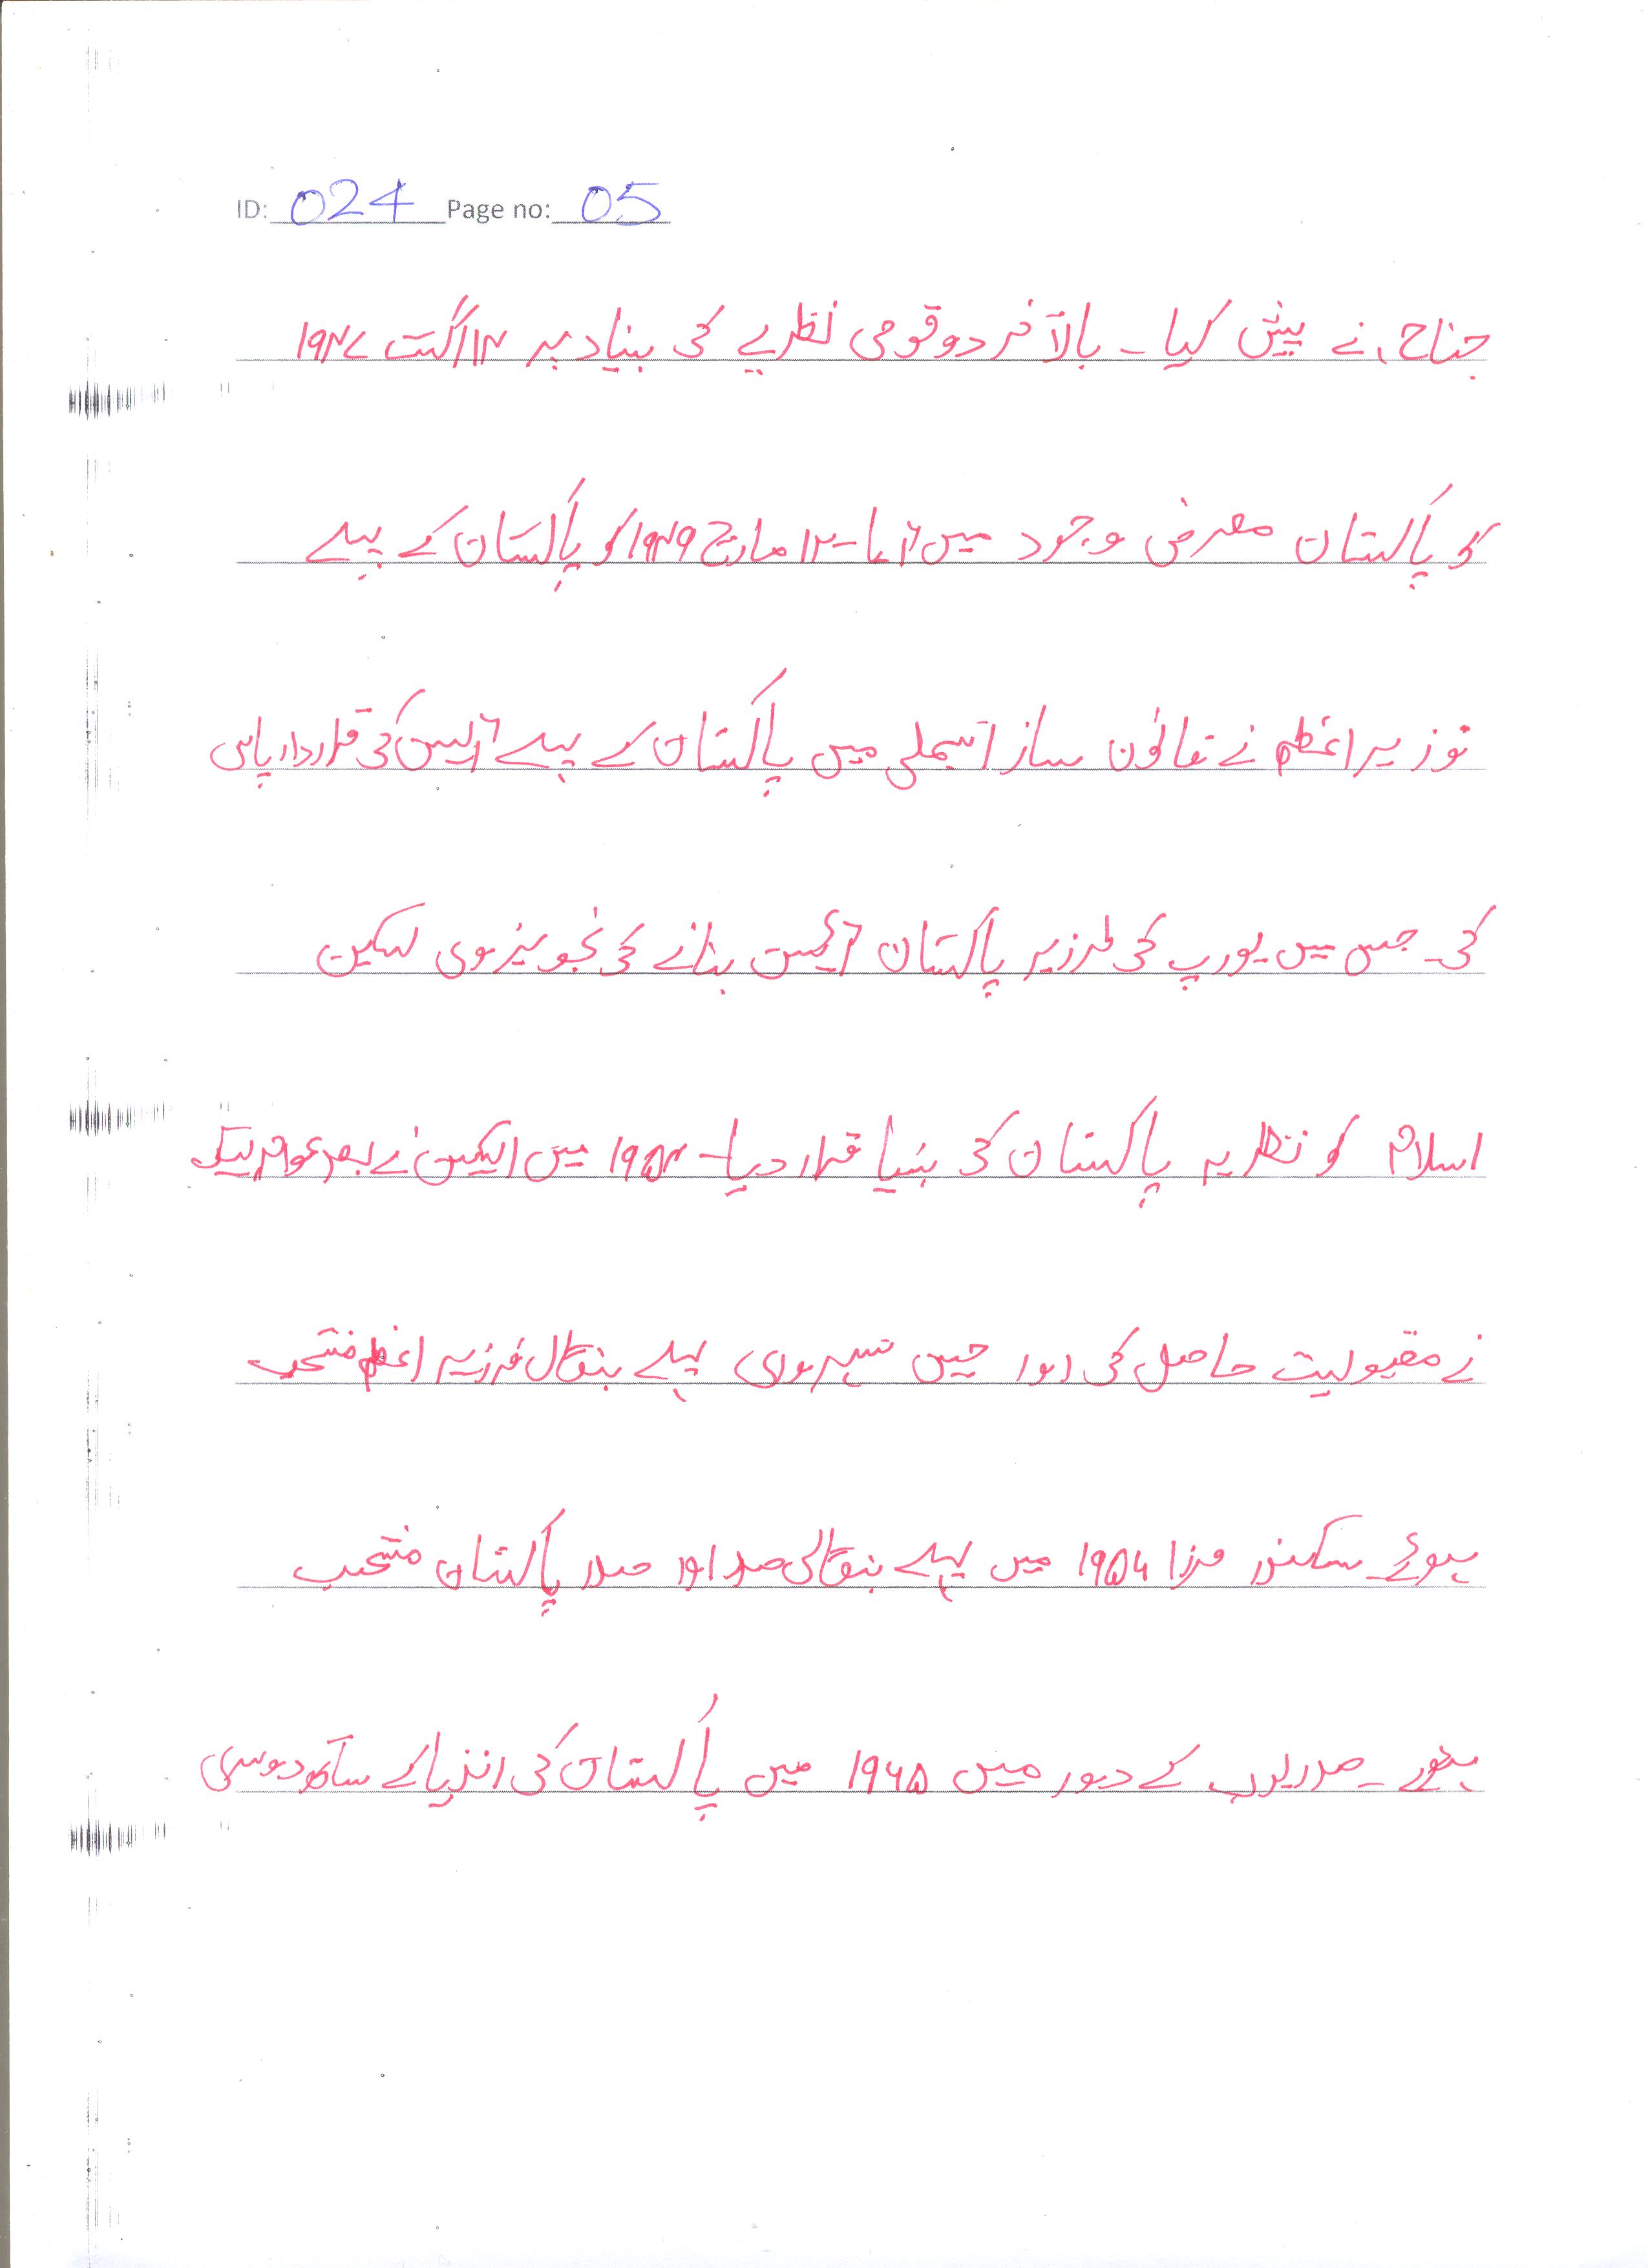 ID: 024 Page no: 05
جناح نے پیش کیا۔ بالآخر دو قومی نظریے کی بنیاد پر ۱۴ اگست ۱۹۴۷
کو پاکستان معرض وجود میں آیا۔ ۱۲ مارچ ۱۹۴۹ کو پاکستان کے پہلے
وزیر اعظم نے قانون ساز اسمبلی میں پاکستان کے پہلے آئین کی قرارداد پاس
کی۔ جس میں یورپ کی طرز پر پاکستان آئین بنانے کی تجویز دی لیکن
اسلام کو نظریہ پاکستان کی بنیا قرار دیا۔ ۱۹۵۴ میں الیکشن نے بعد عوام لیگ
نے مقبولیت حاصل کی اور حسین پہلے بنگال وزیر اعظم منتخب
ہوئے۔ سکندر مرزا ۱۹۵۶ میں پہلے بنگالی صدر اور صدر پاکستان منتخب
ہوئے۔ صدر ایوب کے دور میں ۱۹۶۵ میں پاکستان کی انڈیا کے ساتھ دوسری